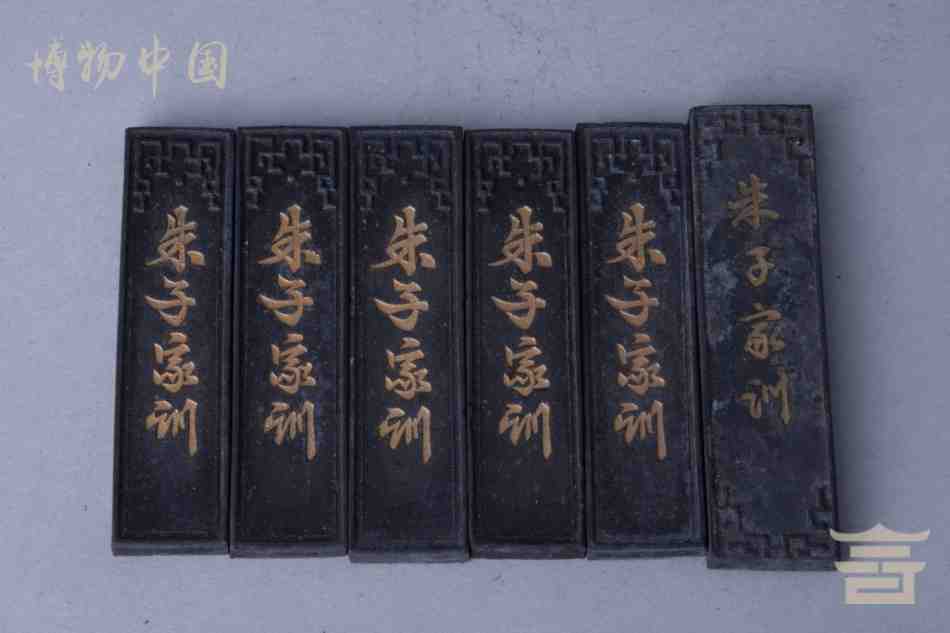 博物中国
朱子家训
朱子家训
朱子家训
朱子家训
朱子家训
朱子家训